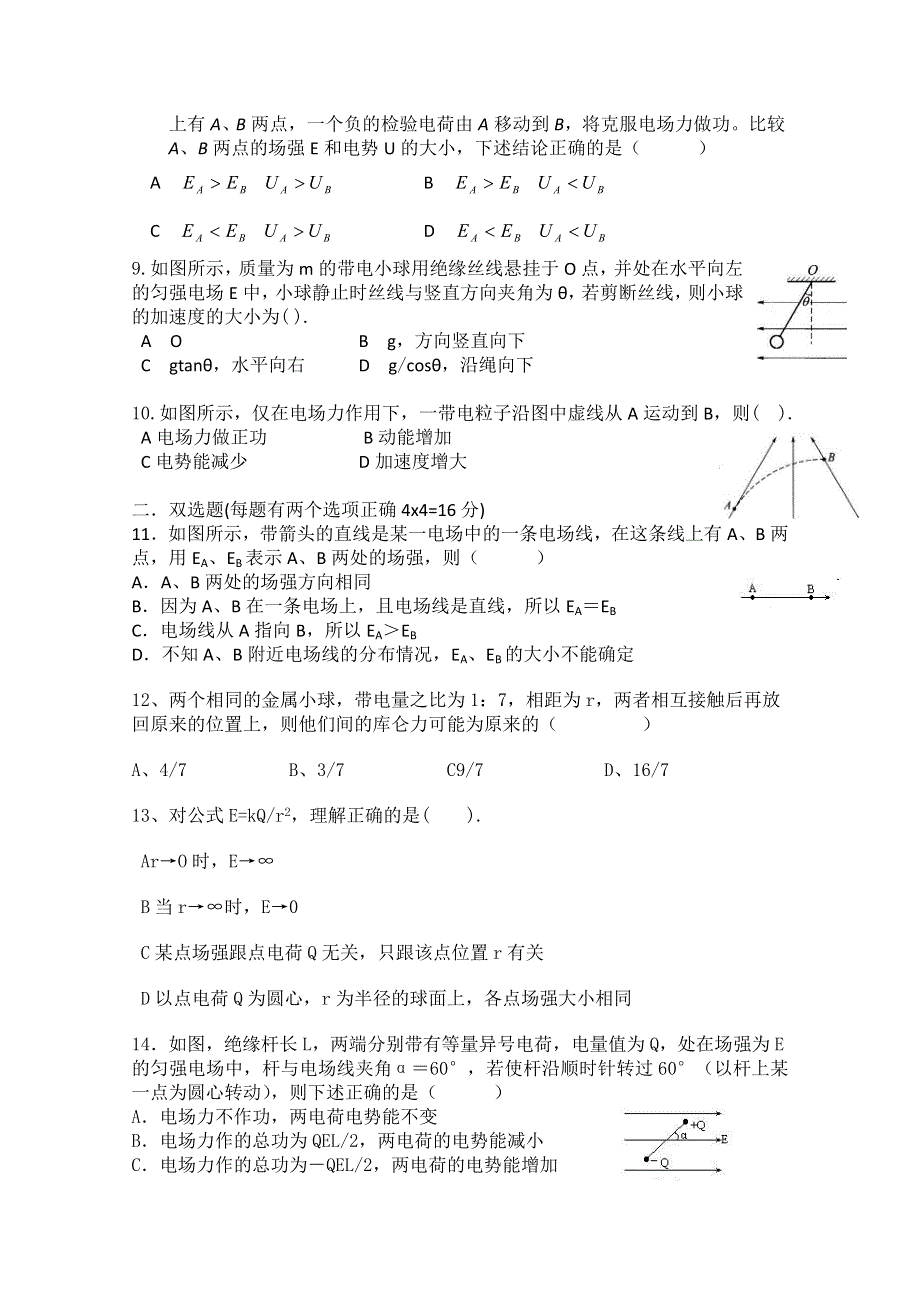 上有 A、B 两点，一个负的检验电荷由 A 移动到 B，将克服电场力做功。比较
A、B 两点的场强 E 和电势 U 的大小，下述结论正确的是（　　）
A E_A＞E_B U_A＞U_B B E_A＞E_B U_A＜U_B
C E_A＜E_B U_A＞U_B D E_A＜E_B U_A＜U_B
9.如图所示，质量为 m 的带电小球用绝缘丝线悬挂于 O 点，并处在水平向左
的匀强电场 E 中，小球静止时丝线与竖直方向夹角为 θ，若剪断丝线，则小球
的加速度的大小为( ).
O
θ
A O B g，方向竖直向下
C gtanθ，水平向右 D g/cosθ，沿绳向下
10.如图所示，仅在电场力作用下，一带电粒子沿图中虚线从 A 运动到 B，则( ).
A 电场力做正功 B 动能增加
C 电势能减少 D 加速度增大
A
B
二．双选题(每题有两个选项正确 4x4=16 分)
11．如图所示，带箭头的直线是某一电场中的一条电场线，在这条线上有 A、B 两
点，用 E_A、E_B 表示 A、B 两处的场强，则（　　）
A．A、B 两处的场强方向相同
B．因为 A、B 在一条电场上，且电场线是直线，所以 E_A＝E_B
C．电场线从 A 指向 B，所以 E_A＞E_B
D．不知 A、B 附近电场线的分布情况，E_A、E_B 的大小不能确定
A B
12、两个相同的金属小球，带电量之比为 1：7，相距为 r，两者相互接触后再放
回原来的位置上，则他们间的库仑力可能为原来的（　　）
A、4/7 B、3/7 C9/7 D、16/7
13、对公式 E=kQ/r²，理解正确的是( ).
Ar→O 时，E→∞
B 当 r→∞时，E→0
C 某点场强跟点电荷 Q 无关，只跟该点位置 r 有关
D 以点电荷 Q 为圆心，r 为半径的球面上，各点场强大小相同
14．如图，绝缘杆长 L，两端分别带有等量异号电荷，电量值为 Q，处在场强为 E
的匀强电场中，杆与电场线夹角α＝60°，若使杆沿顺时针转过 60°（以杆上某
一点为圆心转动），则下述正确的是（　　）
A．电场力不作功，两电荷电势能不变
B．电场力作的总功为 QEL/2，两电荷的电势能减小
C．电场力作的总功为－QEL/2，两电荷的电势能增加
+Q
α E
－Q